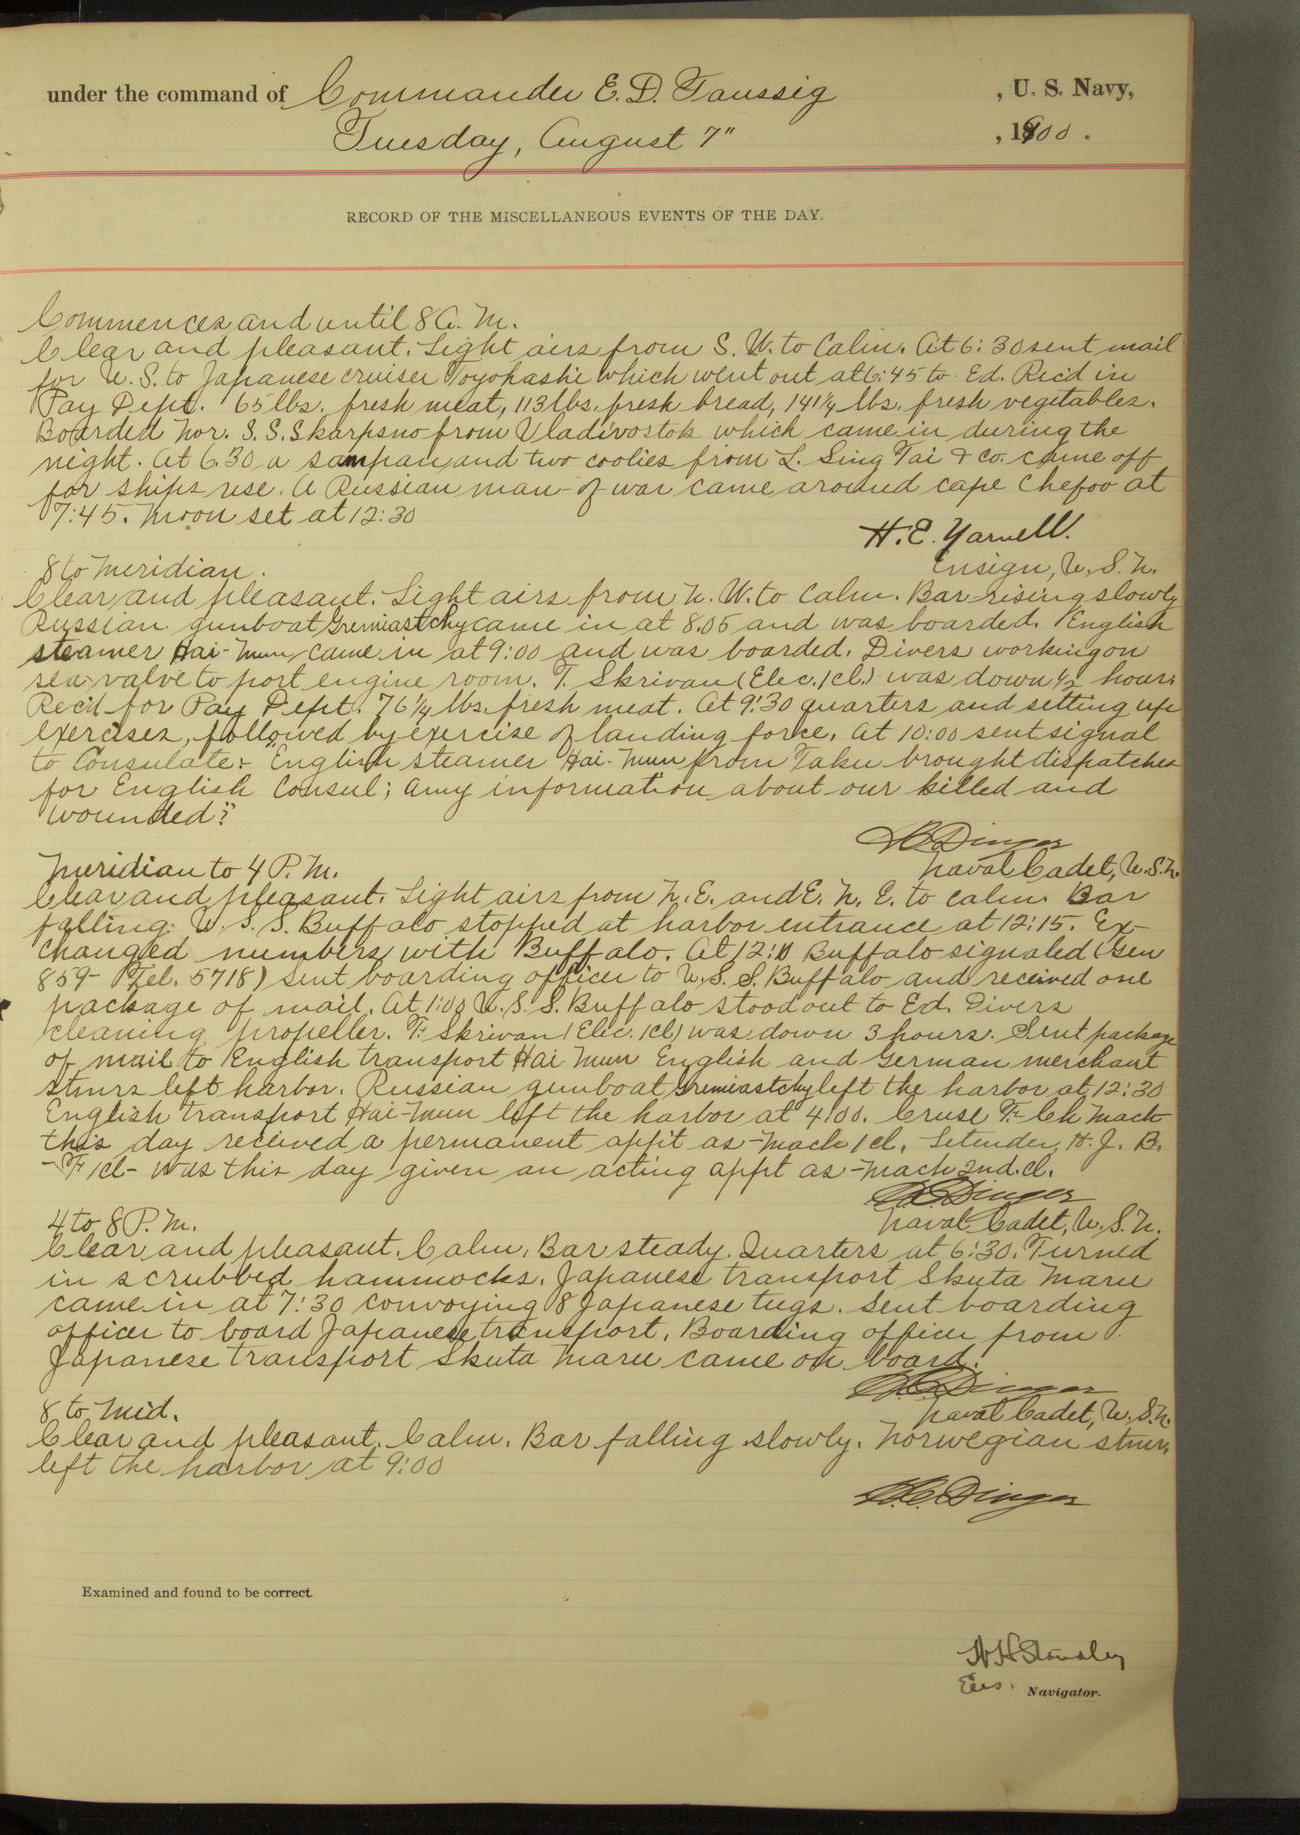 under the command of Commander E. D. Taussig , U. S. Navy,
Tuesday, August 7" , 1900.
RECORD OF THE MISCELLANEOUS EVENTS OF THE DAY.
Commences and until 8 A. M.
Clear and pleasant. Light airs from S. W. to Calm. At 6:30 sent mail
for U. S. to Japanese cruiser Toyohashi which went out at 6:45 to Ed. Rec'd in
Pay Dept. 65 lbs. fresh meat, 113 lbs. fresh bread, 141 1/4 lbs. fresh vegetables.
Boarded Nor. S. S. Skarpsno from Vladivostok which came in during the
night. At 6.30 a sampan and two coolies from L. Sing Tai & Co. came off
for ships use. A Russian man-of war came around cape Chefoo at
7:45. Moon set at 12:30
H. E. Yarnell.
Ensign, U. S. N.
8 to Meridian.
Clear and pleasant. Light airs from N. W. to Calm. Bar rising slowly
Russian gunboat Gremiastchy came in at 8.05 and was boarded. English
steamer Hai-Mun came in at 9:00 and was boarded. Divers working on
sea valve to port engine room. T. Skrivan (Elec. 1cl.) was down 1/2 hours
Rec'd for Pay Dept. 76 1/4 lbs. fresh meat. At 9:30 quarters and setting up
exercises, followed by exercise of landing force. At 10:00 sent signal
to Consulate:- "English steamer Hai-Mun from Taku brought dispatches
for English Consul; Any information about our killed and
wounded?"
H C Dinger
Naval Cadet, U.S.N.
Meridian to 4 P. M.
Clear and pleasant. Light airs from N. E. and E. N. E. to calm. Bar
falling. U. S. S. Buffalo stopped at harbor entrance at 12:15. Ex-
changed numbers with Buffalo. At 12: Buffalo signaled (Gen
859- Tel. 5718) Sent boarding officer to U. S. S. Buffalo and received one
package of mail. At 1:00 U. S. S. Buffalo stood out to Ed. Divers
cleaning propeller. F. Skrivan (Elec. 1cl) was down 3 hours. Sent package
of mail to English transport Hai Mun English and German merchant
stmrs left harbor. Russian gunboat Gremiastchy left the harbor at 12:30
English transport Hai-Mun left the harbor at 4:00. Cruse F. Ch Mach
this day received a permanent app't as -Mach 1cl. Setender, H. J. B.
-F 1cl- was this day given an acting appt as -Mach 2nd. cl.
H C Dinger
Naval Cadet, U. S. N.
4 to 8 P. M.
Clear and pleasant. Calm. Bar steady. Quarters at 6:30. Turned
in scrubbed hammocks. Japanese transport Skuta Maru
came in at 7:30 convoying 8 Japanese tugs. Sent boarding
officer to board Japanese transport. Boarding officer from
Japanese transport Skuta Maru came on board.
H C Dinger
Naval Cadet, U. S. N.
8 to Mid.
Clear and pleasant. Calm. Bar falling slowly. Norwegian stmr,
left the harbor at 9:00
H. C. Dinger
Examined and found to be correct.
W H Standley
Ens. Navigator.